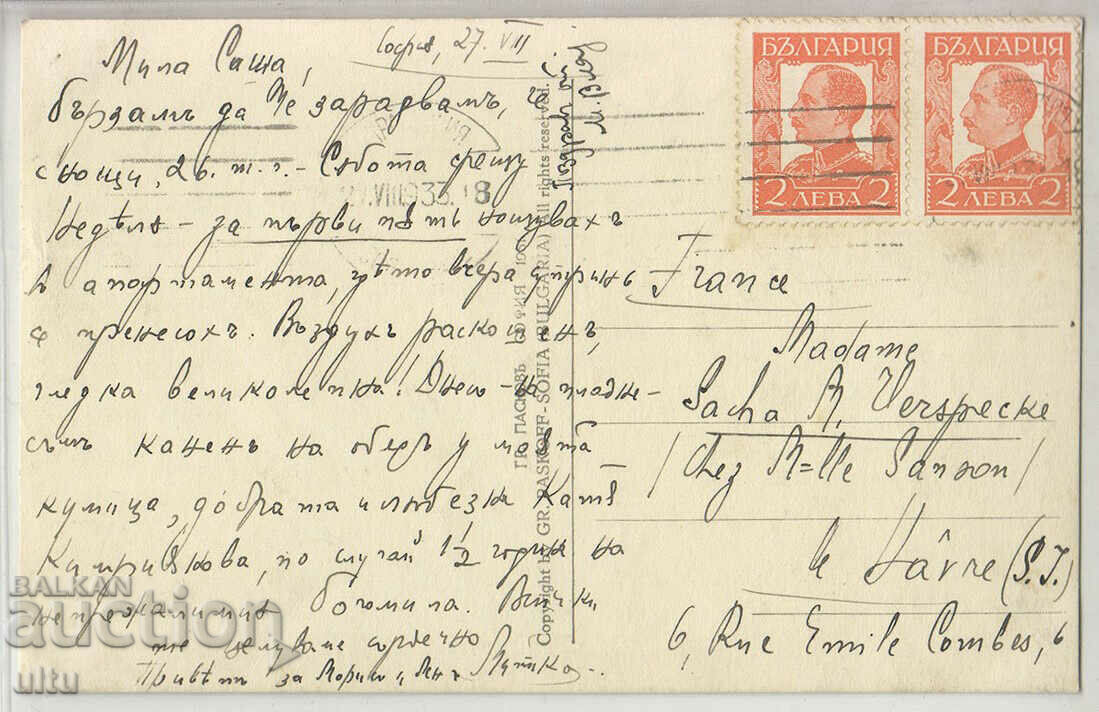 София, 27. VIII
Мила Саша,
бързамъ да те зарадвамъ, че
снощи, 26. т. г. - Събота срещу
Недѣля - за първи пѫть нощувахъ
въ апартамента, гдѣто вчера сутринь
се пренесохъ. Въздухъ разкошенъ,
гледка великолепна! Днесъ - на пладне -
съмъ каненъ на обедъ у моята
кумица, добрата и любезна Катя
по случай 1½ години на
непрежалимия Богомила. Всички
те целуваме сърдечно
Привѣтъ за Морисъ и
Поздрав от
БЪЛГАРИЯ
2 ЛЕВА 2
БЪЛГАРИЯ
2 ЛЕВА 2
VIII 1933. 18
ГР. ПАСКОВЪ СОФИЯ
Copyright by GR. PASKOFF - SOFIA (BULGARIA) All rights reserved.
France
Madame
Sacha A. Verspecke
(chez M=lle Sanson)
le Hâvre (S. I.)
6, Rue Emile Combes, 6
BALKAN
auction
ultu